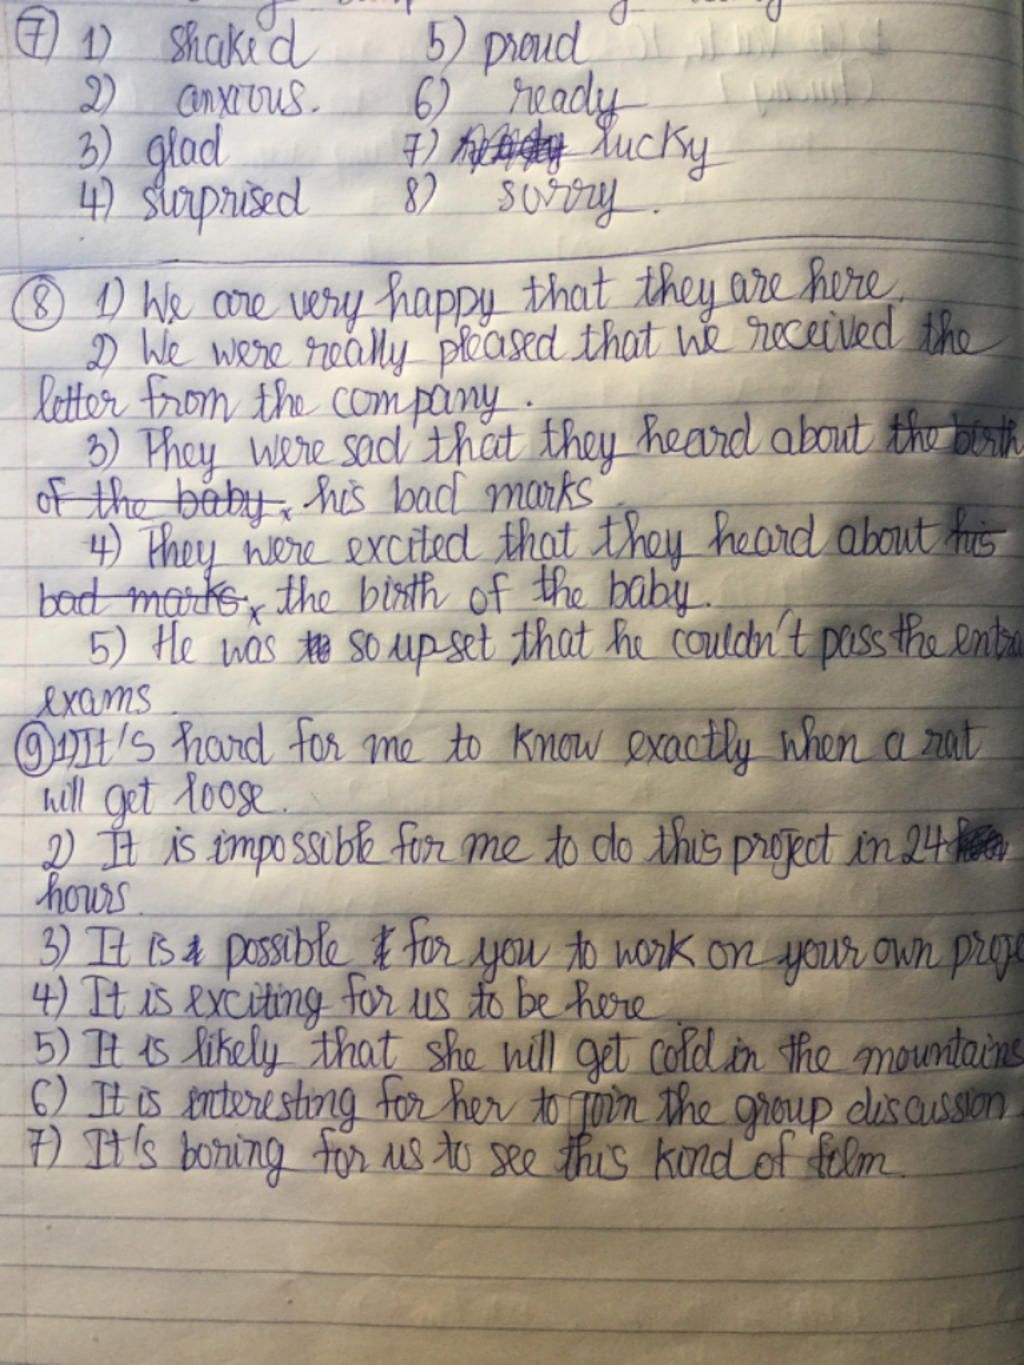 7 1) shaked 5) proud
2) anxious. 6) ready
3) glad 7) lucky
4) surprised 8) sorry.
8 1) We are very happy that they are here.
2) We were really pleased that we received the
letter from the company.
3) They were sad that they heard about the birth
of the baby. his bad marks.
4) They were excited that they heard about his
bad marks. the birth of the baby.
5) He was so upset that he couldn't pass the
exams.
9 1) It's hard for me to know exactly when a rat
will get loose.
2) It is impossible for me to do this project in 24
hours.
3) It is possible for you to work on your own
4) It is exciting for us to be here.
5) It is likely that she will get cold in the mountains
6) It is interesting for her to join the group discussion
7) It's boring for us to see this kind of film.